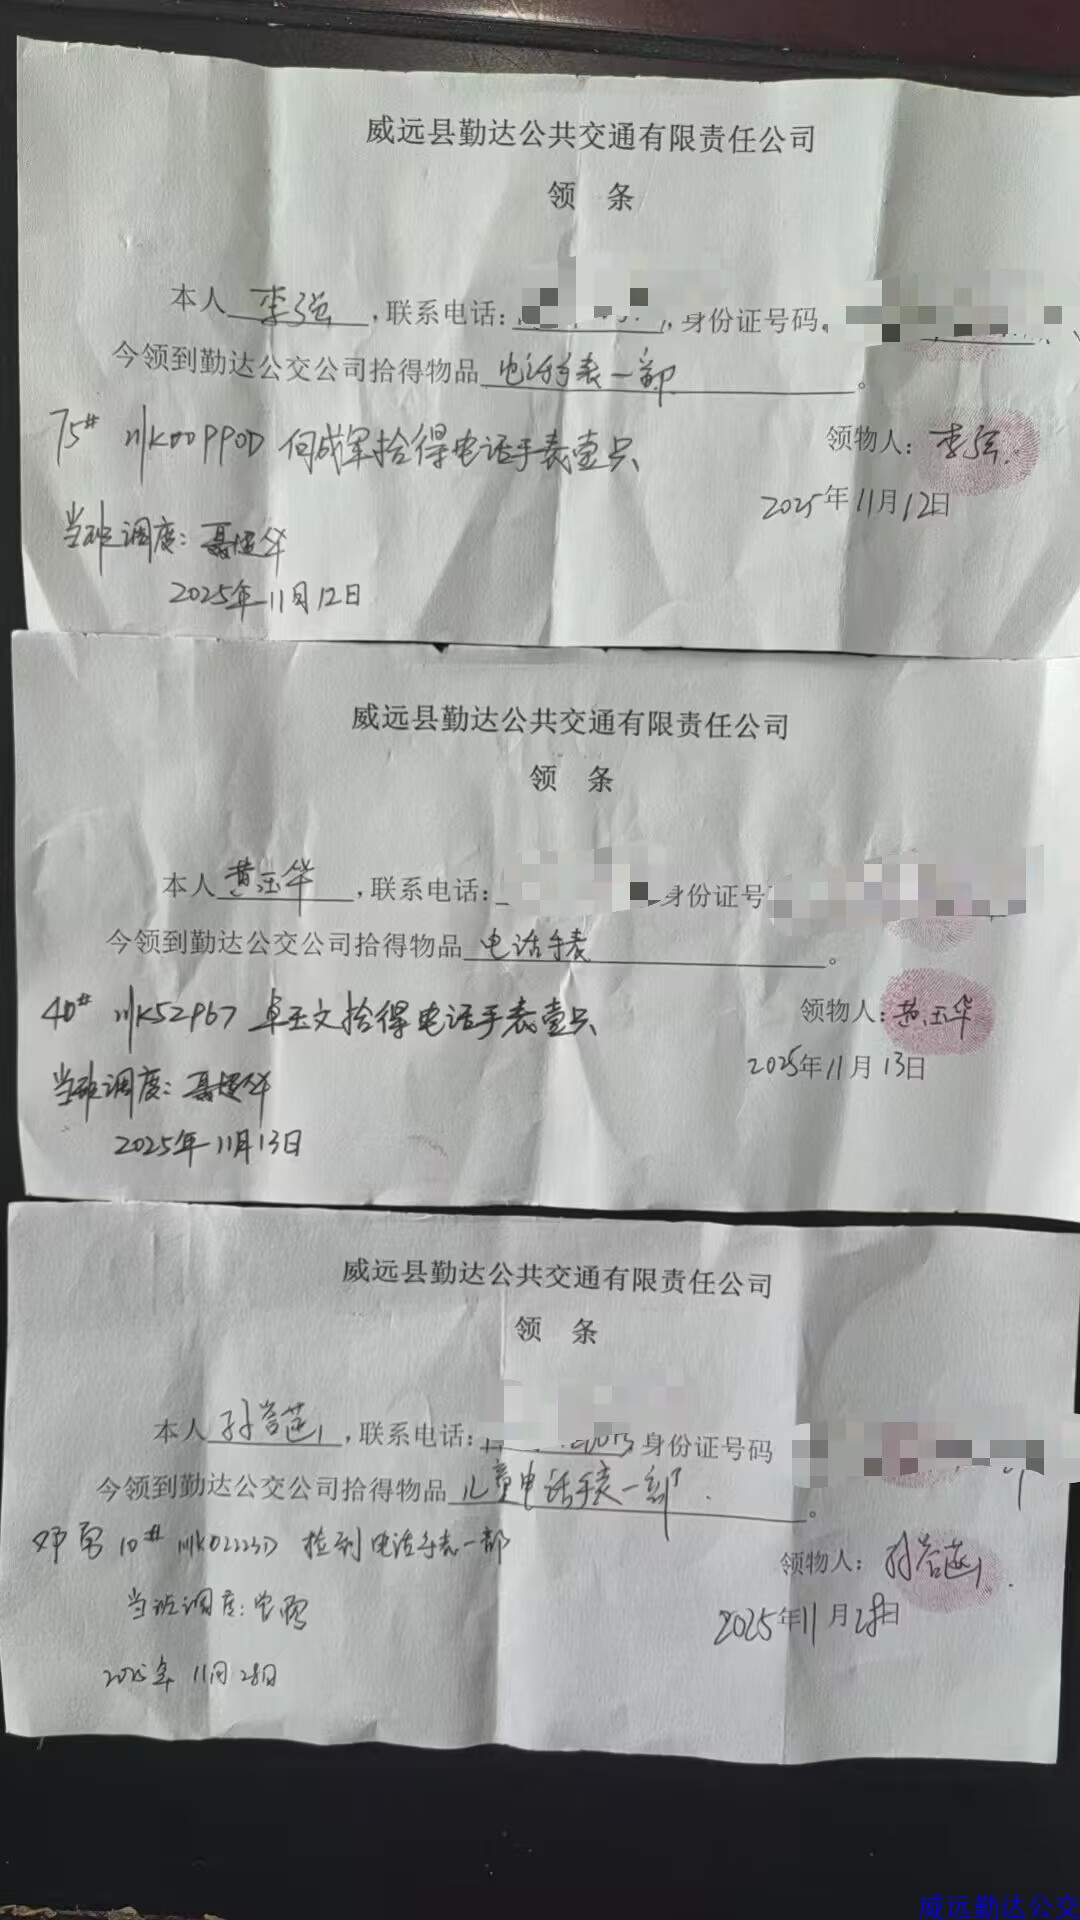 威远县勤达公共交通有限责任公司
领 条
本人李强,联系电话: ,身份证号码
今领到勤达公交公司拾得物品电话手表一部。
75# 川K00990D 何成军拾得电话手表壹只
领物人:李强.
2025年11月12日
当班调度:聂
2025年11月12日
威远县勤达公共交通有限责任公司
领 条
本人黄玉华,联系电话: 身份证号
今领到勤达公交公司拾得物品电话手表。
40# 川K52967 卓玉文拾得电话手表壹只
领物人:黄玉华
2025年11月13日
当班调度:聂
2025年11月13日
威远县勤达公共交通有限责任公司
领 条
本人孙,联系电话: 身份证号码
今领到勤达公交公司拾得物品儿童电话手表一部.。
邓勇 10# 川K02223D 捡到电话手表一部
领物人:孙.
2025年11月28日
当班调度:
2025年11月28日
威远勤达公交